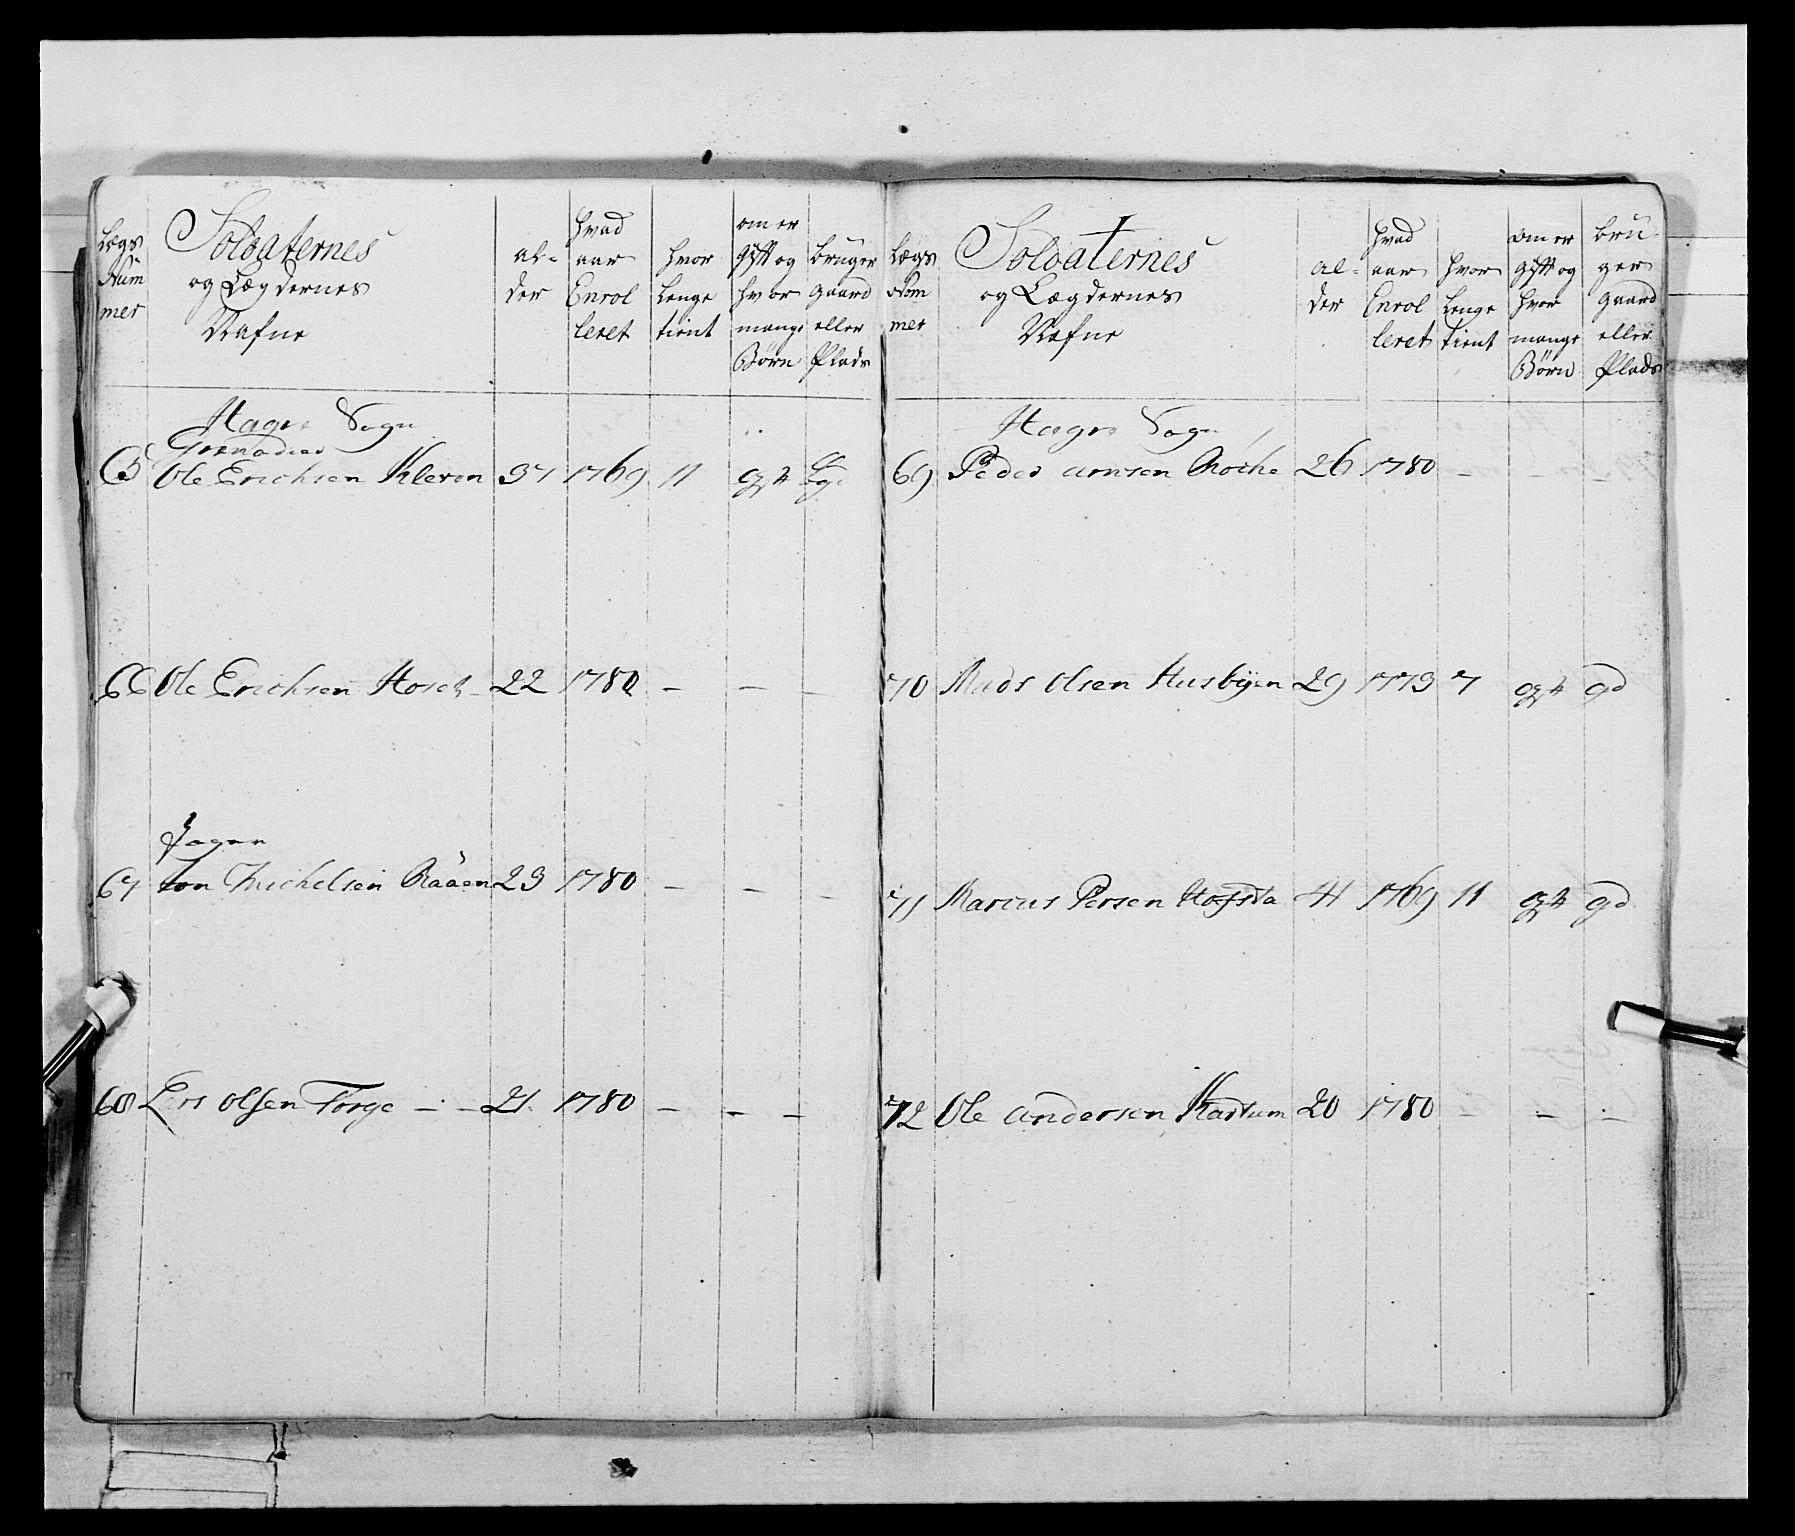 Lægs Num mer | Soldaternes og Lægdernes Nafne | al- der | hvad aar Enrol leret | hvor Lenge tient | om er gift og hvor mange Børn | bruger gaard eller Plads
Hagre Sogn
Grenadeer
65 Ole Erichsen Kleven 37 1769 11 gft
66 Ole Erichsen 22 1780 - - -
Jæger
67 Jon Michelsen Rååen 23 1780 - - -
68 Ers olsen Forge - - 21 1780 - - -
Lægs Nom mer | Soldaternes og Lægdernes Næfne | al- der | hvad aar Enrol leret | hvor Lenge tient | om er gift og hvor mange Børn | bru ger gaard eller Plads
Hagre Sogn
69 Peder arnsen Roche 26 1780 - - -
70 Mads olsen Husbyen 29 1773 7 gft gd
71 Marcus Persen Hofsta 41 1769 11 gft gd
72 Ole andersen Kartum 20 1780 - - -